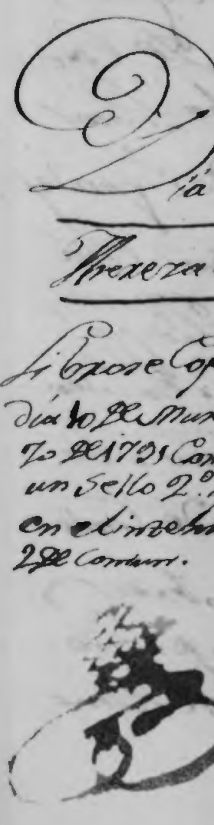 Día
Librose Cop
día 10 de Mar
zo de 1791 Con
un Sello 2º
en el interm
2 de Comun.